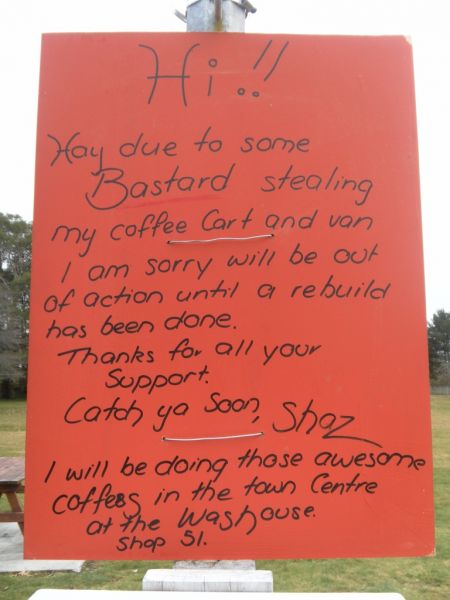 Hi..!!
Hay due to some
Bastard stealing
my coffee Cart and van
I am sorry will be out
of action until a rebuild
has been done.
Thanks for all your
Support.
Catch ya Soon, Shaz
I will be doing those awesome
coffees in the town Centre
at the Washouse.
Shop 51.